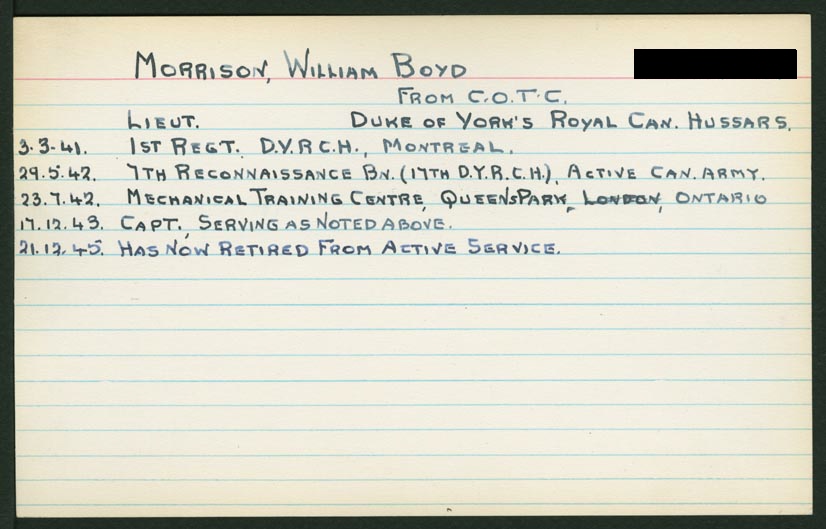 MORRISON, WILLIAM BOYD
FROM C.O.T.C.
LIEUT. DUKE OF YORK'S ROYAL CAN. HUSSARS.
3.3.41. 1ST REGT. D.Y.R.C.H., MONTREAL.
29.5.42. 7TH RECONNAISSANCE BN. (17TH D.Y.R.C.H.), ACTIVE CAN. ARMY.
23.7.42. MECHANICAL TRAINING CENTRE, QUEENS PARK, LONDON, ONTARIO
17.12.43. CAPT., SERVING AS NOTED ABOVE.
21.12.45. HAS NOW RETIRED FROM ACTIVE SERVICE.